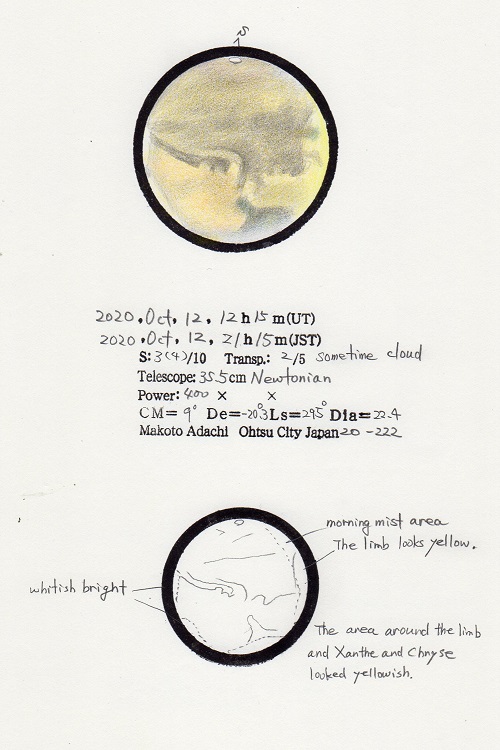 S
2020, Oct, 12, 12 h 15 m (UT)
2020, Oct, 12, 21 h 15 m (JST)
S: 3(4)/10 Transp.: 2/5 sometime cloud
Telescope: 35.5 cm Newtonian
Power: 400 × ×
CM= 9° De=-20.3° Ls=295° Dia=22.4
Makoto Adachi Ohtsu City Japan 20-222
morning mist area
The limb looks yellow.
whitish bright
The area around the limb
and Xanthe and Chryse
looked yellowish.